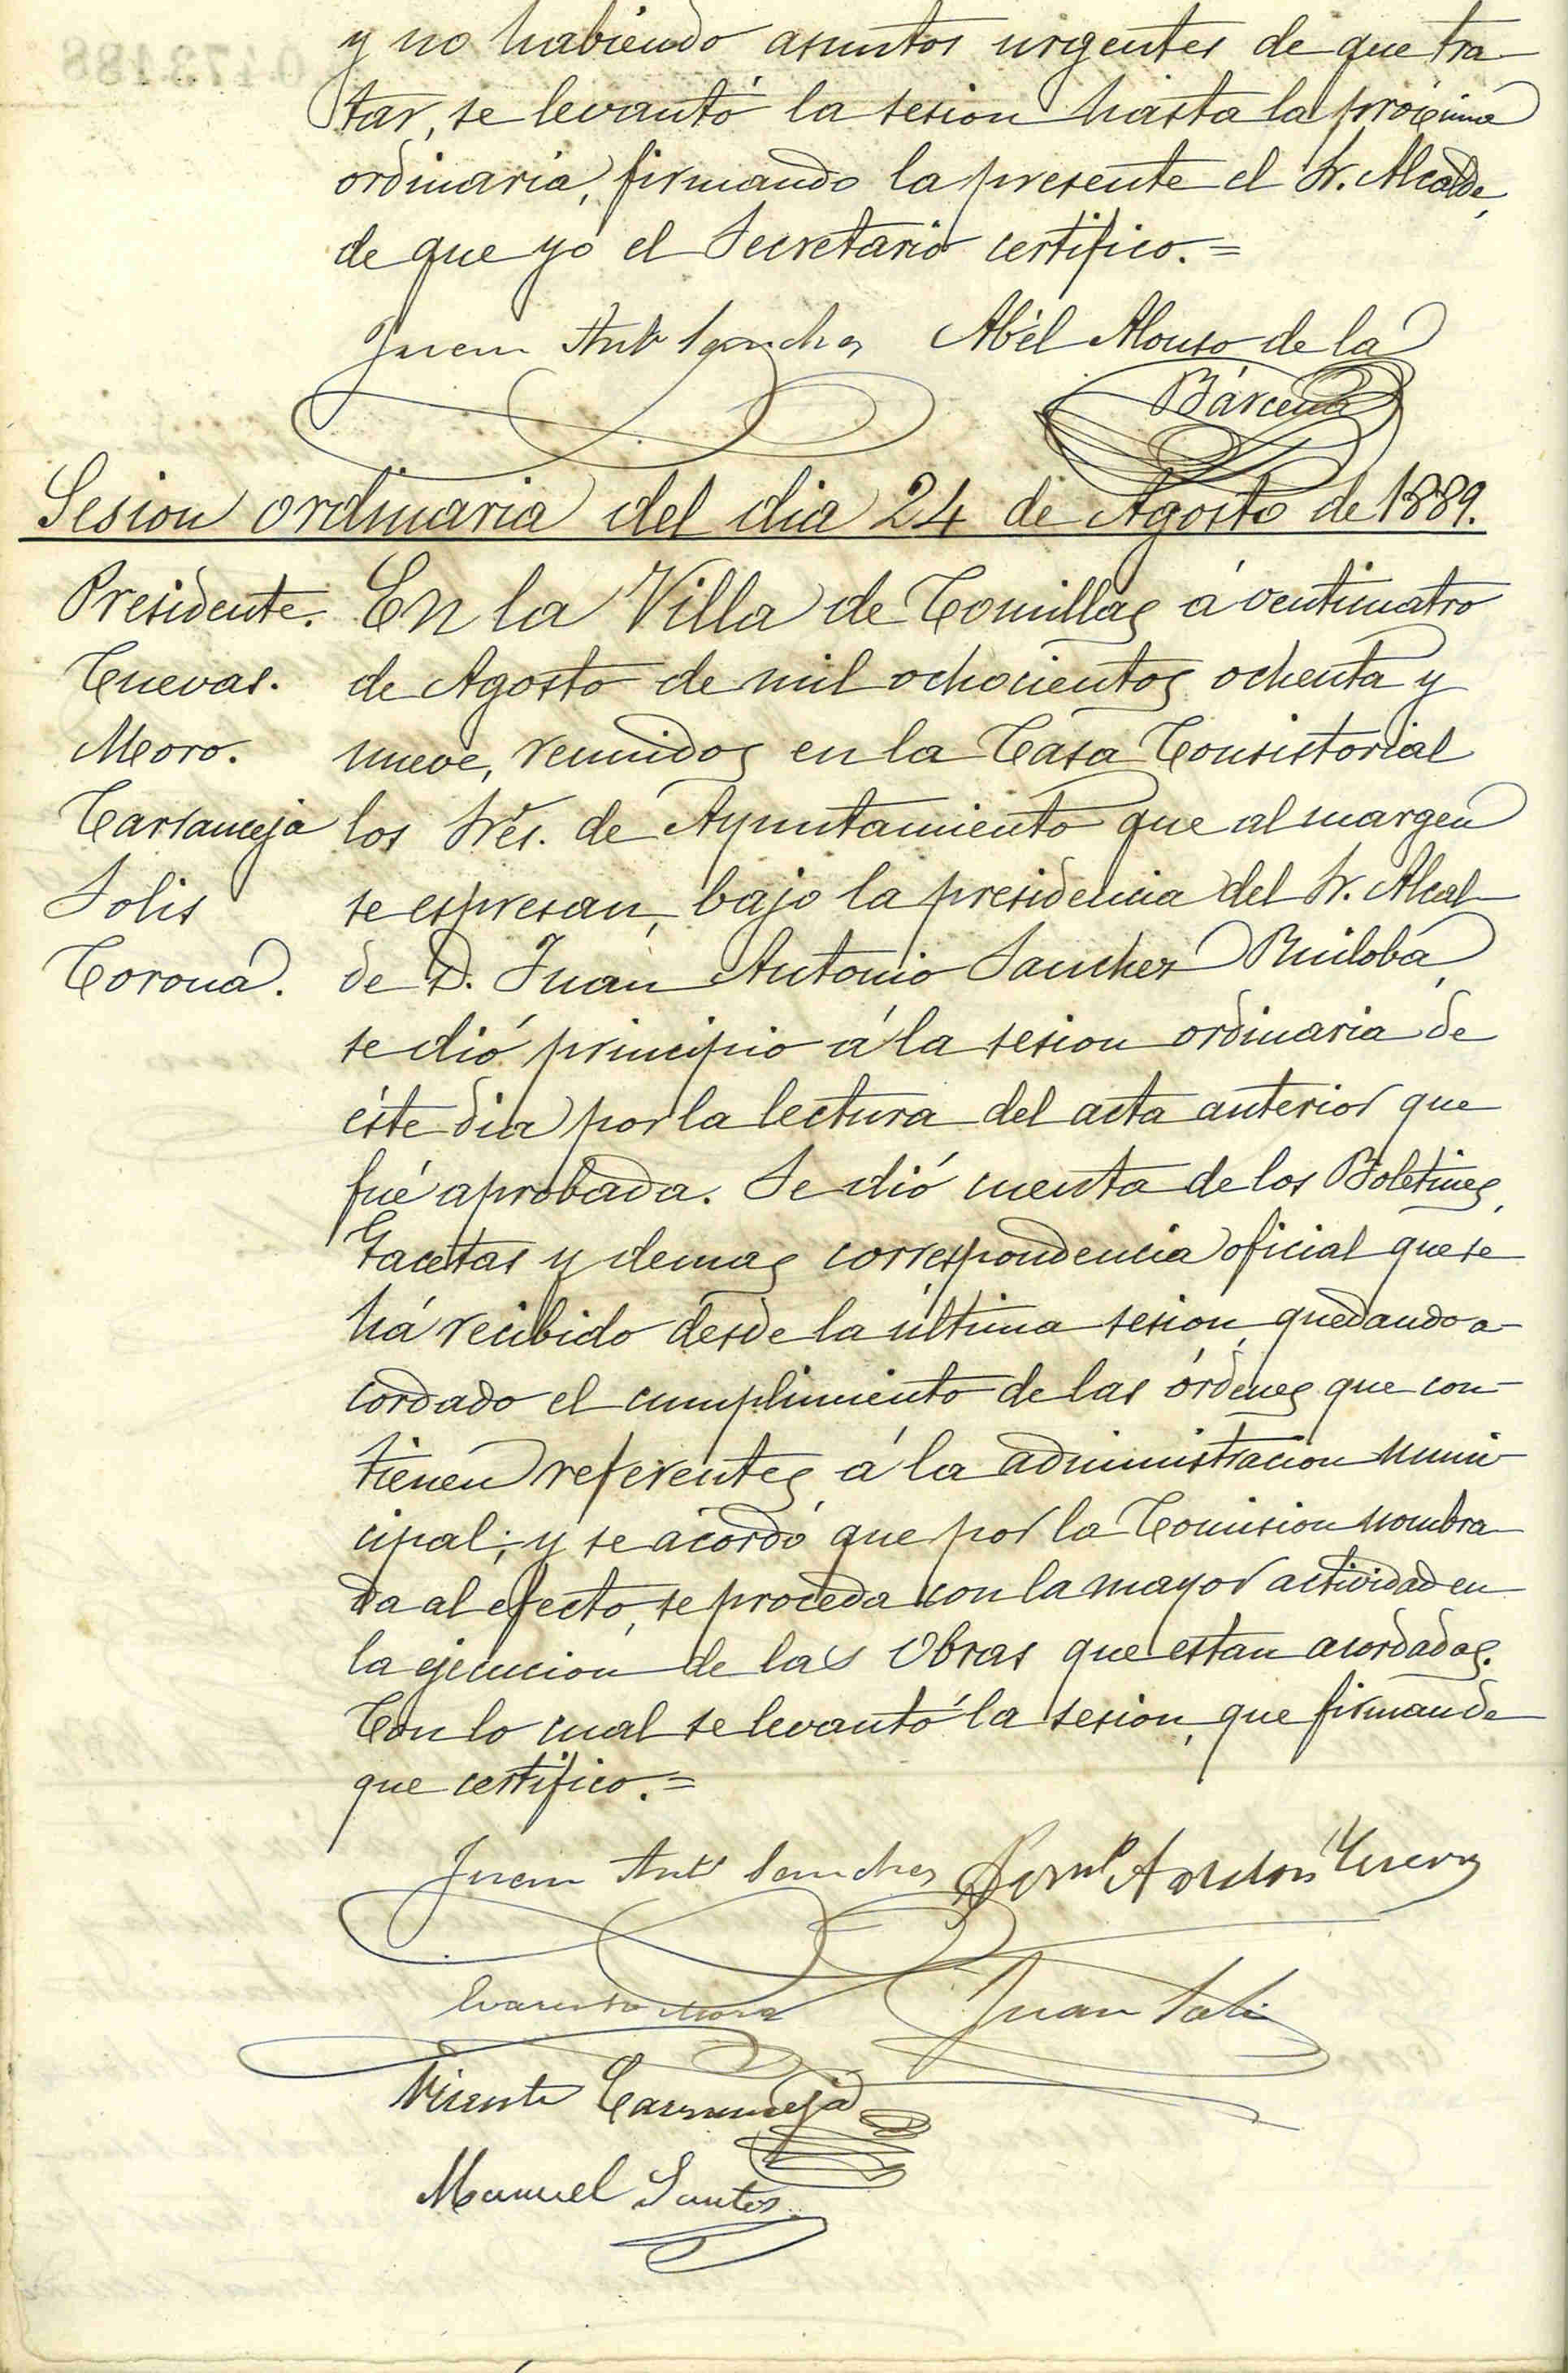 y no habiendo asuntos urgentes de que tra-
tar, se levantó la sesion hasta la próxima
ordinaria, firmando la presente el Sr. Alcalde,
de que yó el Secretario certifico.=
Juan Antº Sanchez Abél Alonso de la
Bárcena
Sesion ordinaria del dia 24 de Agosto de 1889.
Presidente.
Cuevas.
Moro.
Carranceja
Solis
Corona.
En la Villa de Comillas á venticuatro
de Agosto de mil ochocientos ochenta y
nueve, reunidos en la Casa Consistorial
los Sres. de Ayuntamiento que al margen
se espresan, bajo la presidencia del Sr. Alcal-
de D. Juan Antonio Sanchez Ruiloba,
se dió principio á la sesion ordinaria de
éste dia por la lectura del acta anterior que
fué aprobada. Se dió cuenta de los Boletines,
Gacetas y demas correspondencia oficial que se
há recibido desde la última sesion, quedando a-
cordado el cumplimiento de las órdenes que con-
tienen referentes á la administracion muni-
cipal; y se acordó que por la Comision nombra-
da al efecto, se proceda con la mayor actividad en
la ejecucion de las Obras que estan acordadas.
Con lo cual se levantó la sesion, que firman de
que certifico.=
Juan Antº Sanchez Cuevas
Evaristo Moro Juan Solis
Vicente Carranceja
Manuel Santos